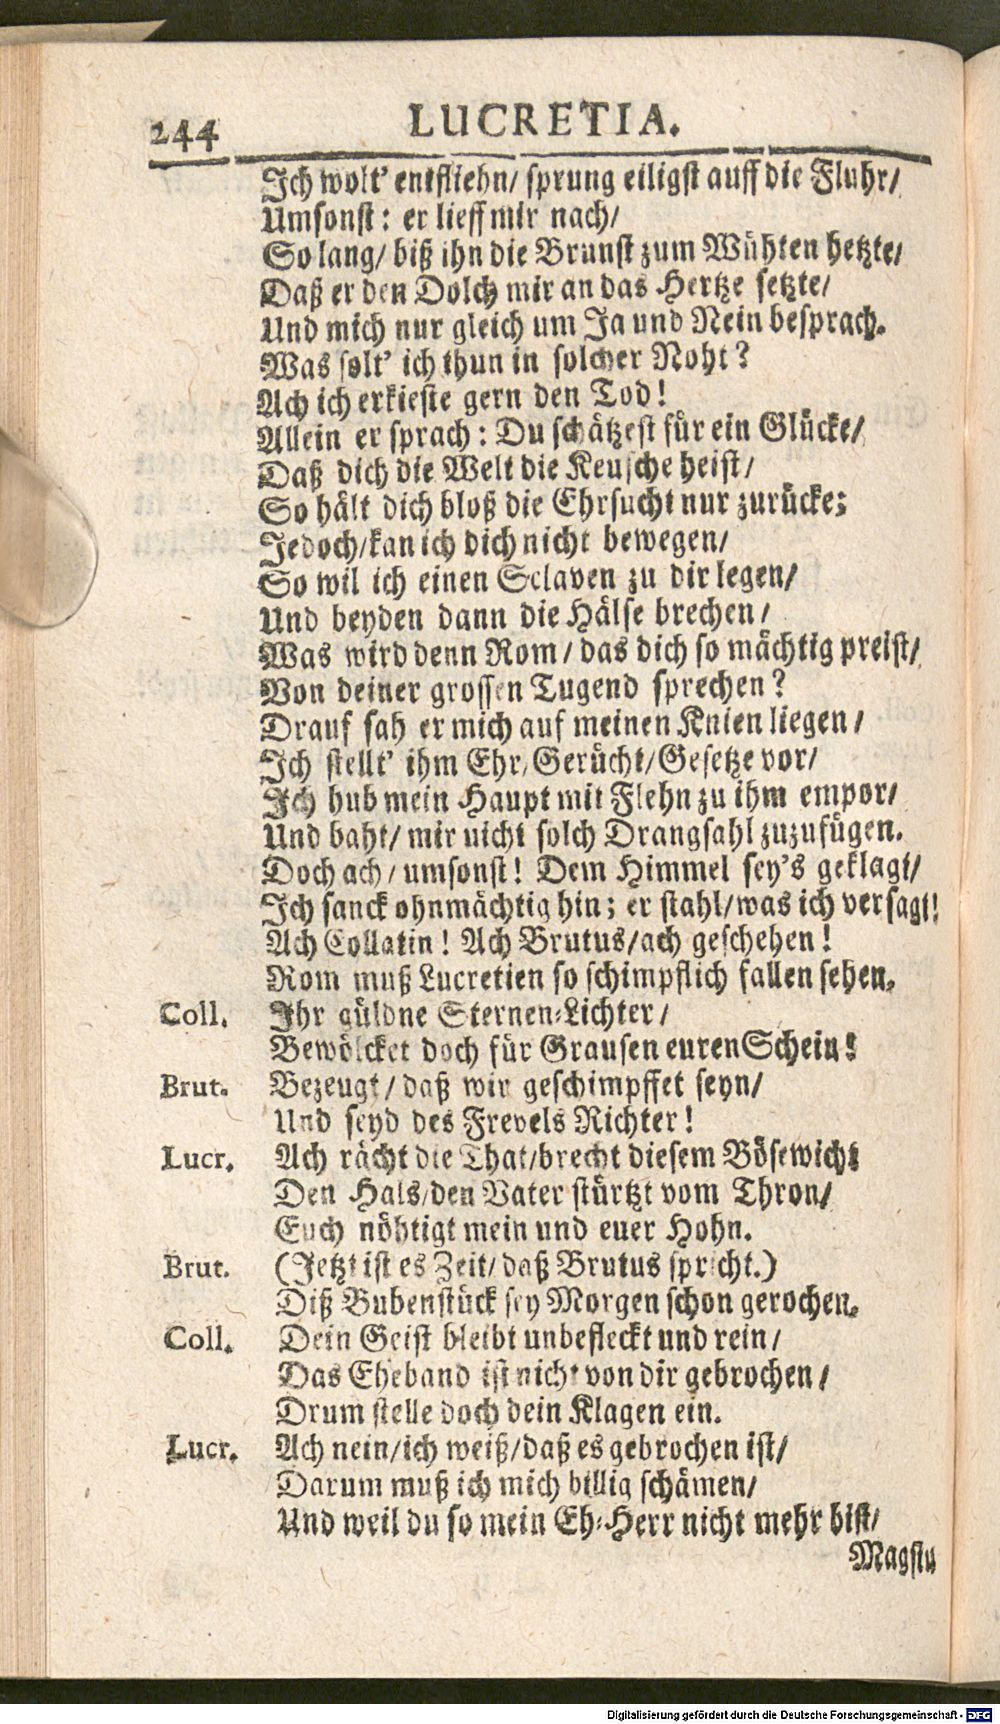 244 LUCRETIA.
Ich wolt' entfliehn/ sprung eiligst auff die Fluhr/
Umsonst: er lieff mir nach/
So lang/ biß ihn die Brunst zum Wühten hetzte/
Daß er den Dolch mir an das Hertze setzte/
Und mich nur gleich um Ja und Nein besprach.
Was solt' ich thun in solcher Noht?
Ach ich erkieste gern den Tod!
Allein er sprach: Du schätzest für ein Glücke/
Daß dich die Welt die Keusche heist/
So hält dich bloß die Ehrsucht nur zurücke;
Jedoch/kan ich dich nicht bewegen/
So wil ich einen Sclaven zu dir legen/
Und beyden dann die Hälse brechen/
Was wird denn Rom/ das dich so mächtig preist/
Von deiner grossen Tugend sprechen?
Drauf sah er mich auf meinen Knien liegen/
Ich stellt' ihm Ehr/Gerücht/Gesetze vor/
Ich hub mein Haupt mit Flehn zu ihm empor/
Und baht/ mir nicht solch Drangsahl zuzufügen.
Doch ach/ umsonst! Dem Himmel sey's geklagt/
Ich sanck ohnmächtig hin; er stahl/was ich versagt!
Ach Collatin! Ach Brutus/ach geschehen!
Rom muß Lucretien so schimpflich fallen sehen.
Coll. Ihr güldne Sternen-Lichter/
Bewölcket doch für Grausen euren Schein!
Brut. Bezeugt/ daß wir geschimpffet seyn/
Und seyd des Frevels Richter!
Lucr. Ach rächt die That/brecht diesem Bösewicht
Den Hals/den Vater stürtzt vom Thron/
Euch nöhtigt mein und euer Hohn.
Brut. (Jetzt ist es Zeit/daß Brutus spricht.)
Diß Bubenstück sey Morgen schon gerochen.
Coll. Dein Geist bleibt unbefleckt und rein/
Das Eheband ist nicht von dir gebrochen/
Drum stelle doch dein Klagen ein.
Lucr. Ach nein/ich weiß/daß es gebrochen ist/
Darum muß ich mich billig schämen/
Und weil du so mein Eh-Herr nicht mehr bist/
Magstu
Digitalisierung gefördert durch die Deutsche Forschungsgemeinschaft - DFG